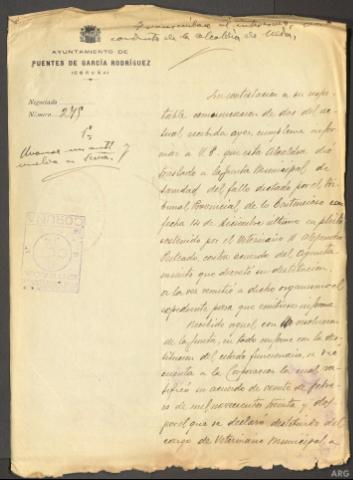 Transcríbase al interesado, por
conducto de la alcaldía de
AYUNTAMIENTO DE
PUENTES DE GARCÍA RODRÍGUEZ
(CORUÑA)
Negociado
Número 245
En contestación a su respe-
table comunicación de dos del ac-
tual recibida ayer, cúmpleme infor-
mar a V.S. que esta Alcaldía dió
traslado a la Junta Municipal de
Sanidad del fallo dictado por el Tri-
bunal Provincial de lo Contencioso con
fecha 14 de Diciembre último en pleito
sostenido por el Veterinario D. Alejandro
contra acuerdo del Ayunta-
miento que decretó su destitución.
a la vez remitió a dicho organismo el
expediente para que emitiera informe.
Recibido aquel con
de la Junta, en todo conforme con la des-
titución del citado funcionario, se dió
cuenta a la Corporación la cual ra-
tificó su acuerdo de veinte de febre-
ro de mil novecientos treinta y dos
por el que se declaró destituido del
cargo de Veterinario Municipal, a
CORUÑA
ARG